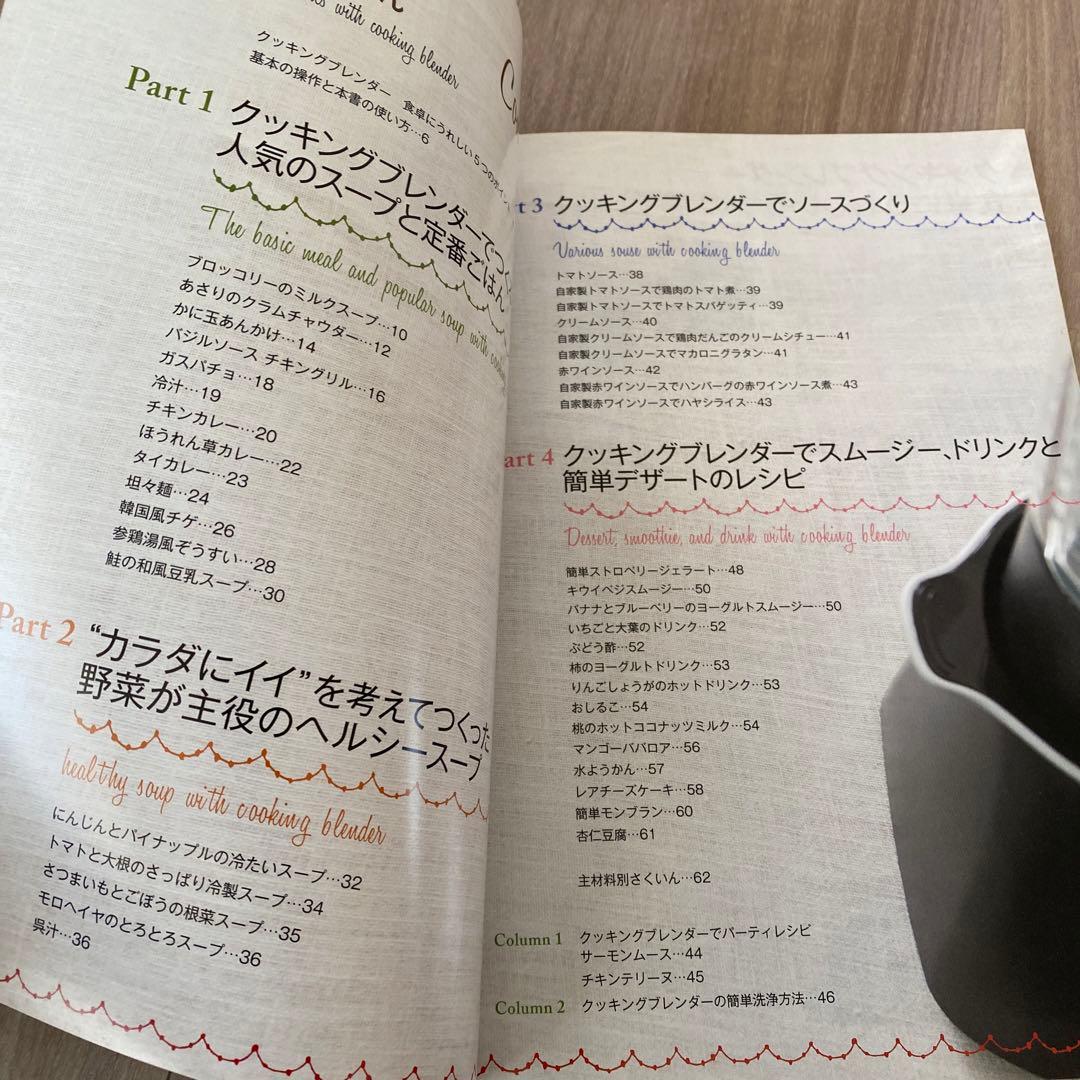 with cooking blender
クッキングブレンダー 食卓にうれしい5つのポイン
基本の操作と本書の使い方…6
Part 1 クッキングブレンダーでつく
人気のスープと定番ごはん
The basic meal and popular soup with cooking
ブロッコリーのミルクスープ…10
あさりのクラムチャウダー…12
かに玉あんかけ…14
バジルソース チキングリル…16
ガスパチョ…18
冷汁…19
チキンカレー…20
ほうれん草カレー…22
タイカレー…23
坦々麺…24
韓国風チゲ…26
参鶏湯風ぞうすい…28
鮭の和風豆乳スープ…30
Part 2 “カラダにイイ”を考えてつくった
野菜が主役のヘルシースープ
healthy soup with cooking blender
にんじんとパイナップルの冷たいスープ…32
トマトと大根のさっぱり冷製スープ…34
さつまいもとごぼうの根菜スープ…35
モロヘイヤのとろとろスープ…36
呉汁…36
rt 3 クッキングブレンダーでソースづくり
Various souse with cooking blender
トマトソース…38
自家製トマトソースで鶏肉のトマト煮…39
自家製トマトソースでトマトスパゲッティ…39
クリームソース…40
自家製クリームソースで鶏肉だんごのクリームシチュー…41
自家製クリームソースでマカロニグラタン…41
赤ワインソース…42
自家製赤ワインソースでハンバーグの赤ワインソース煮…43
自家製赤ワインソースでハヤシライス…43
art 4 クッキングブレンダーでスムージー、ドリンクと
簡単デザートのレシピ
Dessert, smoothie, and drink with cooking blender
簡単ストロベリージェラート…48
キウイベジスムージー…50
バナナとブルーベリーのヨーグルトスムージー…50
いちごと大葉のドリンク…52
ぶどう酢…52
柿のヨーグルトドリンク…53
りんごしょうがのホットドリンク…53
おしるこ…54
桃のホットココナッツミルク…54
マンゴーババロア…56
水ようかん…57
レアチーズケーキ…58
簡単モンブラン…60
杏仁豆腐…61
主材料別さくいん…62
Column 1 クッキングブレンダーでパーティレシピ
サーモンムース…44
チキンテリーヌ…45
Column 2 クッキングブレンダーの簡単洗浄方法…46